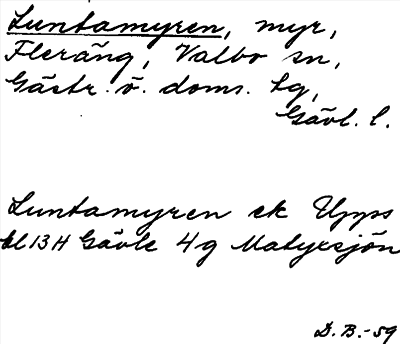 Luntamyren, myr,
Fleräng, Valbo sn,
Gästr. ö. doms. tg,
Gävl. l.
Luntamyren ek Upps
bl 13H Gävle 4g Matyxsjön
D. B.-59